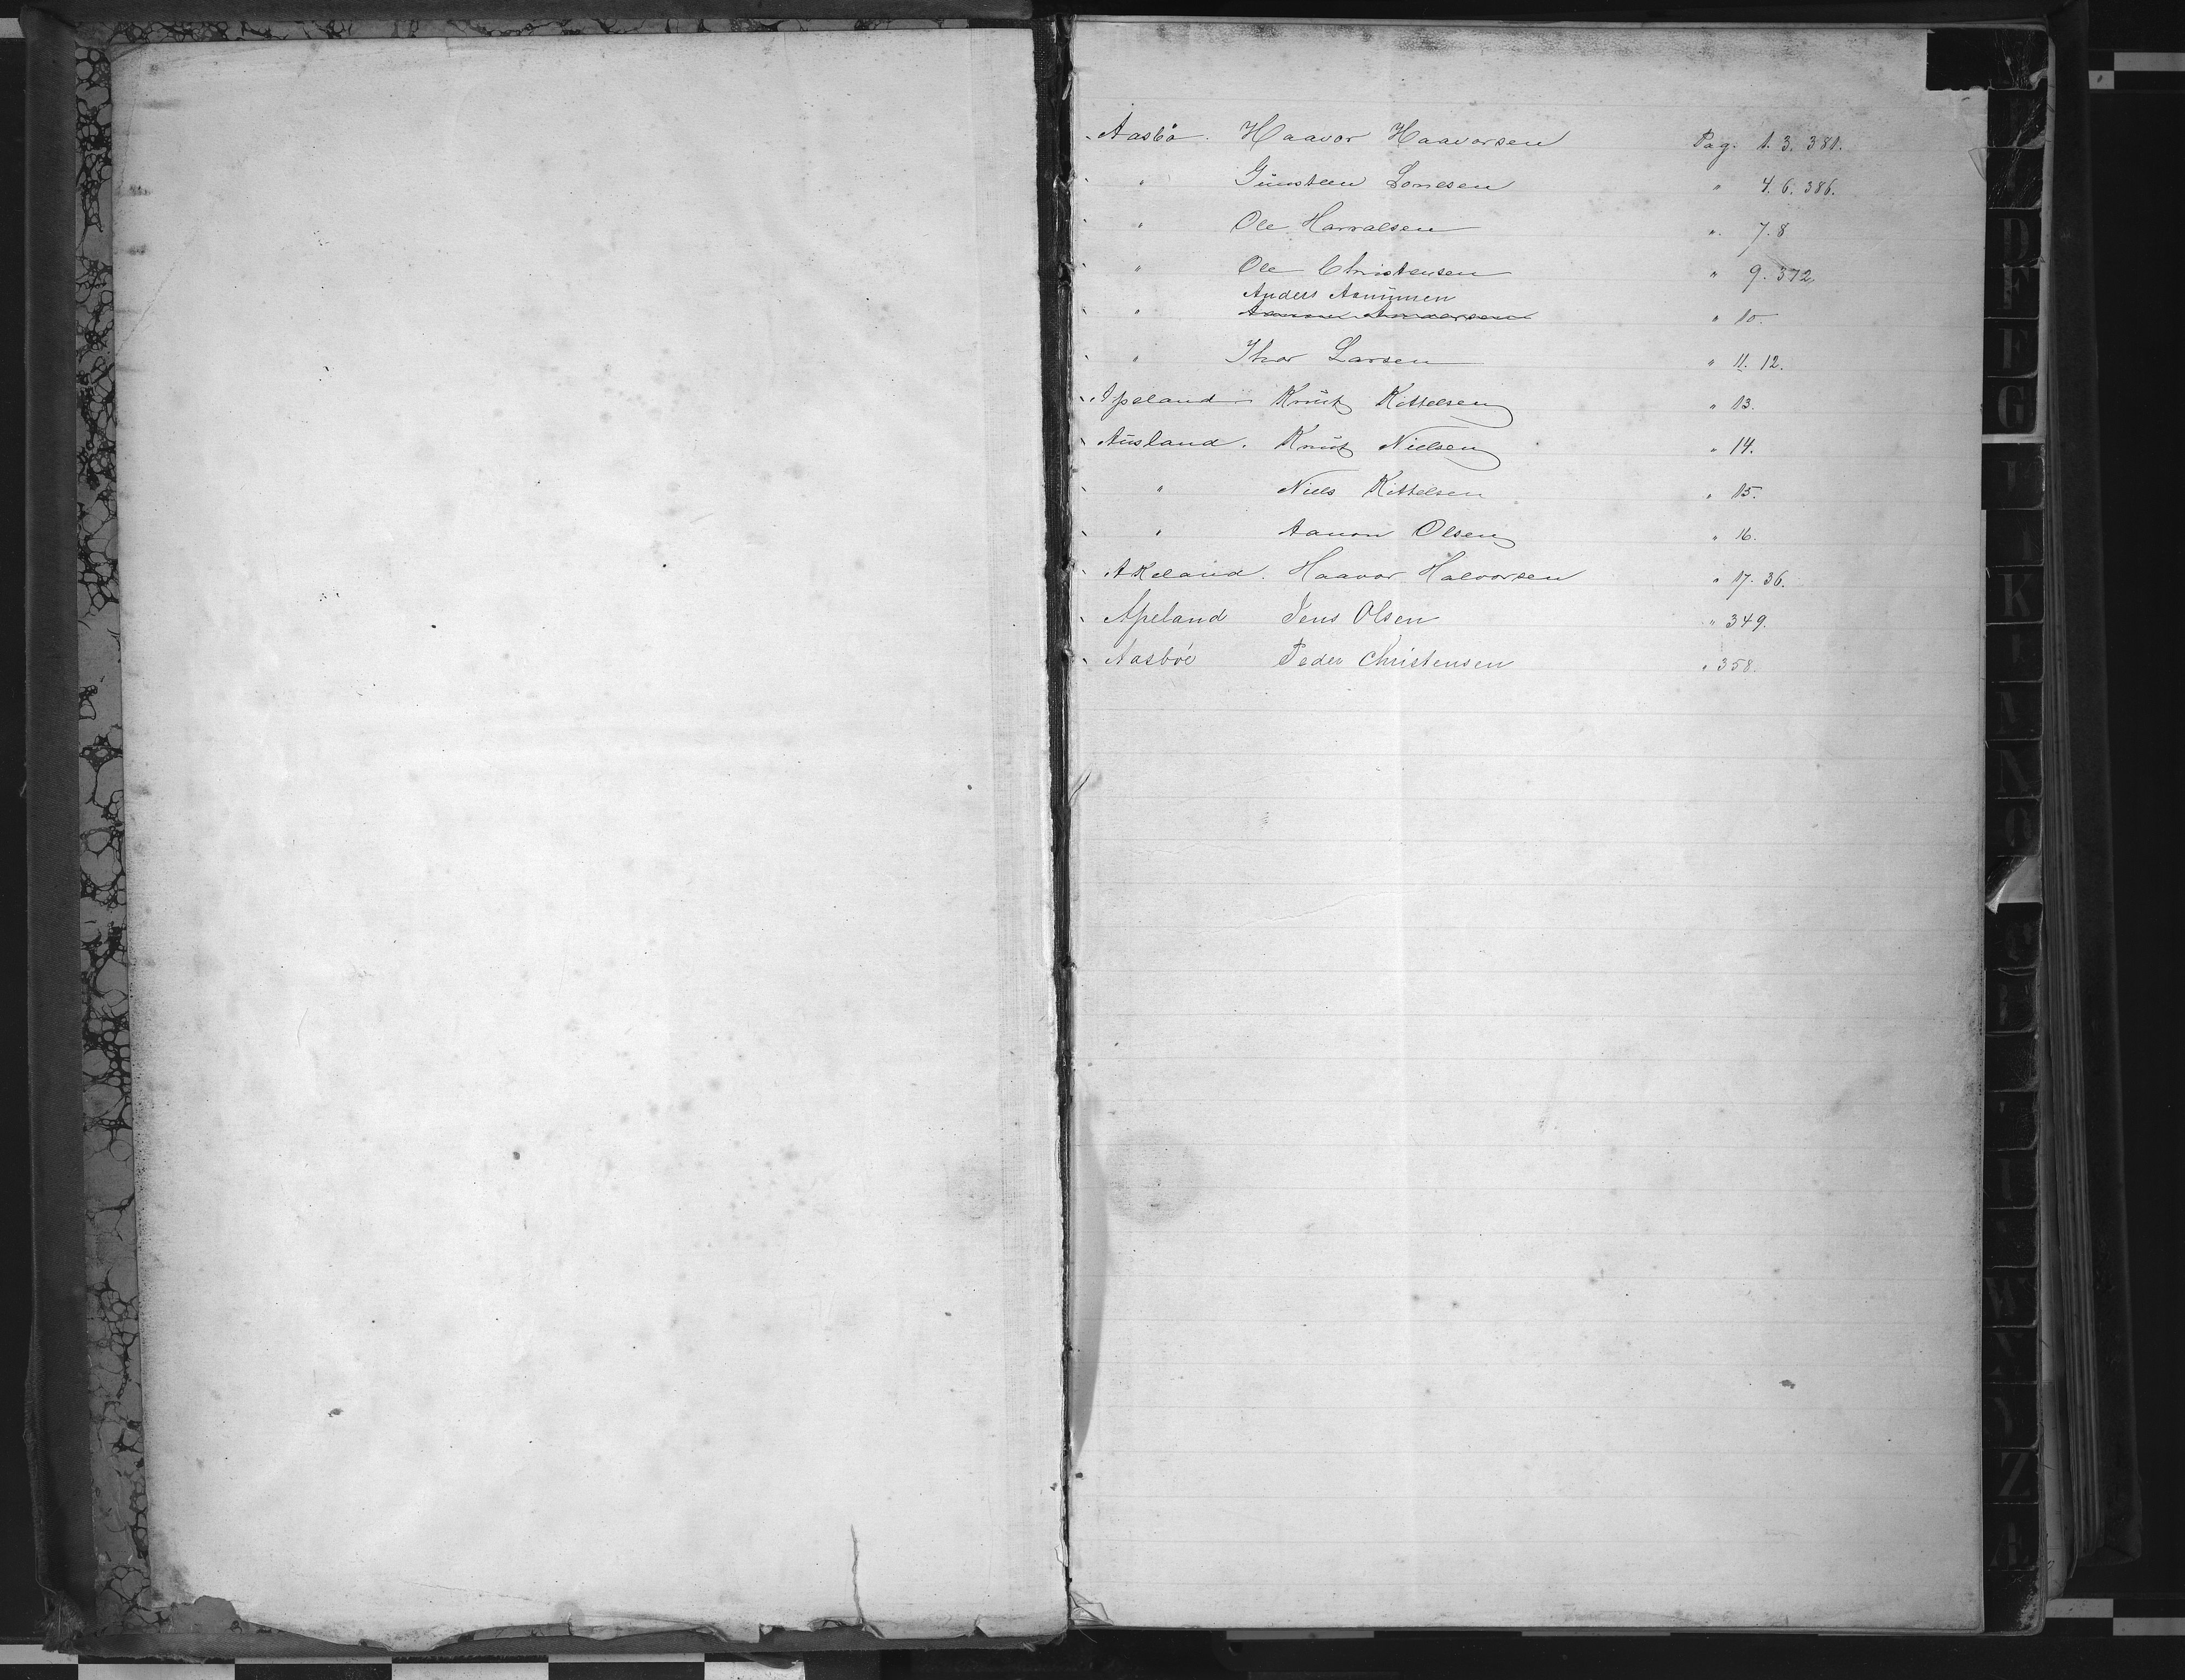 Aasbø. Haavor Haavorsen Pag. 1. 3. 381.
" Günsteen Tonesen " 4. 6. 386.
" Ole Harralsen " 7. 8
" Ole Christensen " 9. 372,
Anders Aanunsen
" " 10.
" Thor Larsen " 11. 12.
Apeland Knüt Kittelsen " 13.
Aüsland. Knüt Nielsen " 14.
" Niels Kittelsen " 15.
" Aanon Olsen " 16.
Akeland. Haavor Halvorsen " 17. 36.
Apeland Jens Olsen " 349.
Aasböe Peder Christensen " 358.
D
E
F
G
I
K
Z
Æ